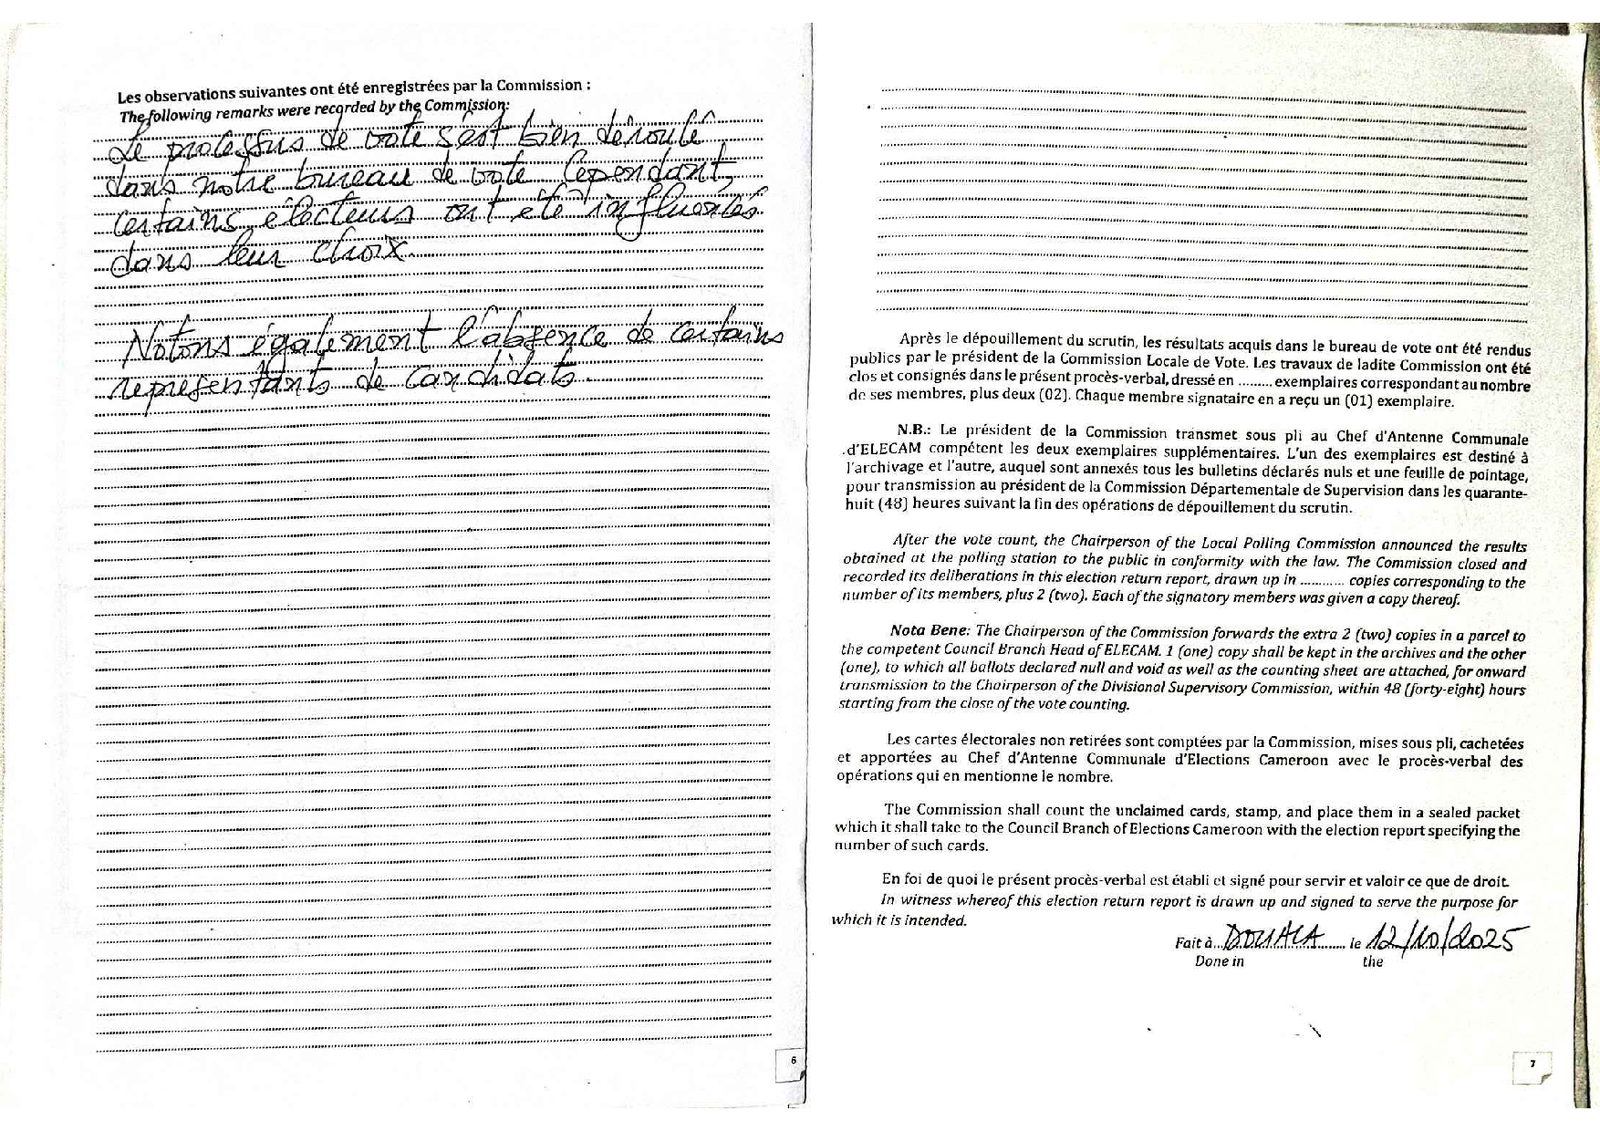 Les observations suivantes ont été enregistrées par la Commission :
The following remarks were recorded by the Commission:
Le processus de vote s'est bien déroulé
dans notre bureau de vote. Cependant,
certains électeurs ont été influencés
dans leur choix.
Notons également l'absence de certains
représentants de candidats.
6
Après le dépouillement du scrutin, les résultats acquis dans le bureau de vote ont été rendus
publics par le président de la Commission Locale de Vote. Les travaux de ladite Commission ont été
clos et consignés dans le présent procès-verbal, dressé en ......... exemplaires correspondant au nombre
de ses membres, plus deux (02). Chaque membre signataire en a reçu un (01) exemplaire.
N.B.: Le président de la Commission transmet sous pli au Chef d'Antenne Communale
d'ELECAM compétent les deux exemplaires supplémentaires. L'un des exemplaires est destiné à
l'archivage et l'autre, auquel sont annexés tous les bulletins déclarés nuls et une feuille de pointage,
pour transmission au président de la Commission Départementale de Supervision dans les quarante-
huit (48) heures suivant la fin des opérations de dépouillement du scrutin.
After the vote count, the Chairperson of the Local Polling Commission announced the results
obtained at the polling station to the public in conformity with the law. The Commission closed and
recorded its deliberations in this election return report, drawn up in ............ copies corresponding to the
number of its members, plus 2 (two). Each of the signatory members was given a copy thereof.
Nota Bene: The Chairperson of the Commission forwards the extra 2 (two) copies in a parcel to
the competent Council Branch Head of ELECAM. 1 (one) copy shall be kept in the archives and the other
(one), to which all ballots declared null and void as well as the counting sheet are attached, for onward
transmission to the Chairperson of the Divisional Supervisory Commission, within 48 (forty-eight) hours
starting from the close of the vote counting.
Les cartes électorales non retirées sont comptées par la Commission, mises sous pli, cachetées
et apportées au Chef d'Antenne Communale d'Elections Cameroon avec le procès-verbal des
opérations qui en mentionne le nombre.
The Commission shall count the unclaimed cards, stamp, and place them in a sealed packet
which it shall take to the Council Branch of Elections Cameroon with the election report specifying the
number of such cards.
En foi de quoi le présent procès-verbal est établi et signé pour servir et valoir ce que de droit.
In witness whereof this election return report is drawn up and signed to serve the purpose for
which it is intended.
Fait à DOUALA le 12/10/2025
Done in the
7